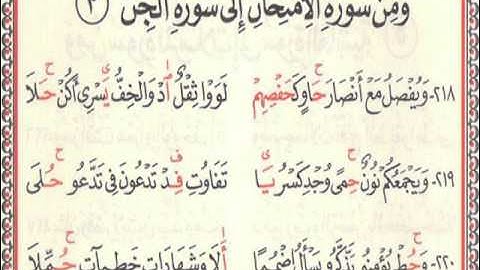 وَمِنْ سُورَةِ الِامْتِحَانِ إِلَى سُورَةِ الْجِنِّ ٣
٢١٨- وَيُفْصَلُ مَعْ أَنْصَارَ حَاوٍ كَحَفْصِهِمْ لَوَوْا ثِقْلُ أُدْ وَالْخِفُّ يَسْرِي أَكُنْ حَلَا
٢١٩- وَيَجْمَعُكُمْ نُونٌ حِمًى وُجْدِ كَسْرُ يَا تَفَاوُتِ فِدْ تَدْعُونَ فِي تَدَّعُو حُلَى
٢٢٠- وَحُطْ يُؤْمِنُو يَذَّكَّرُو يَسْأَلُ اضْمُمًا أَلَا وَشَهَادَاتِ خَطِيآتِ حُمِّلَا